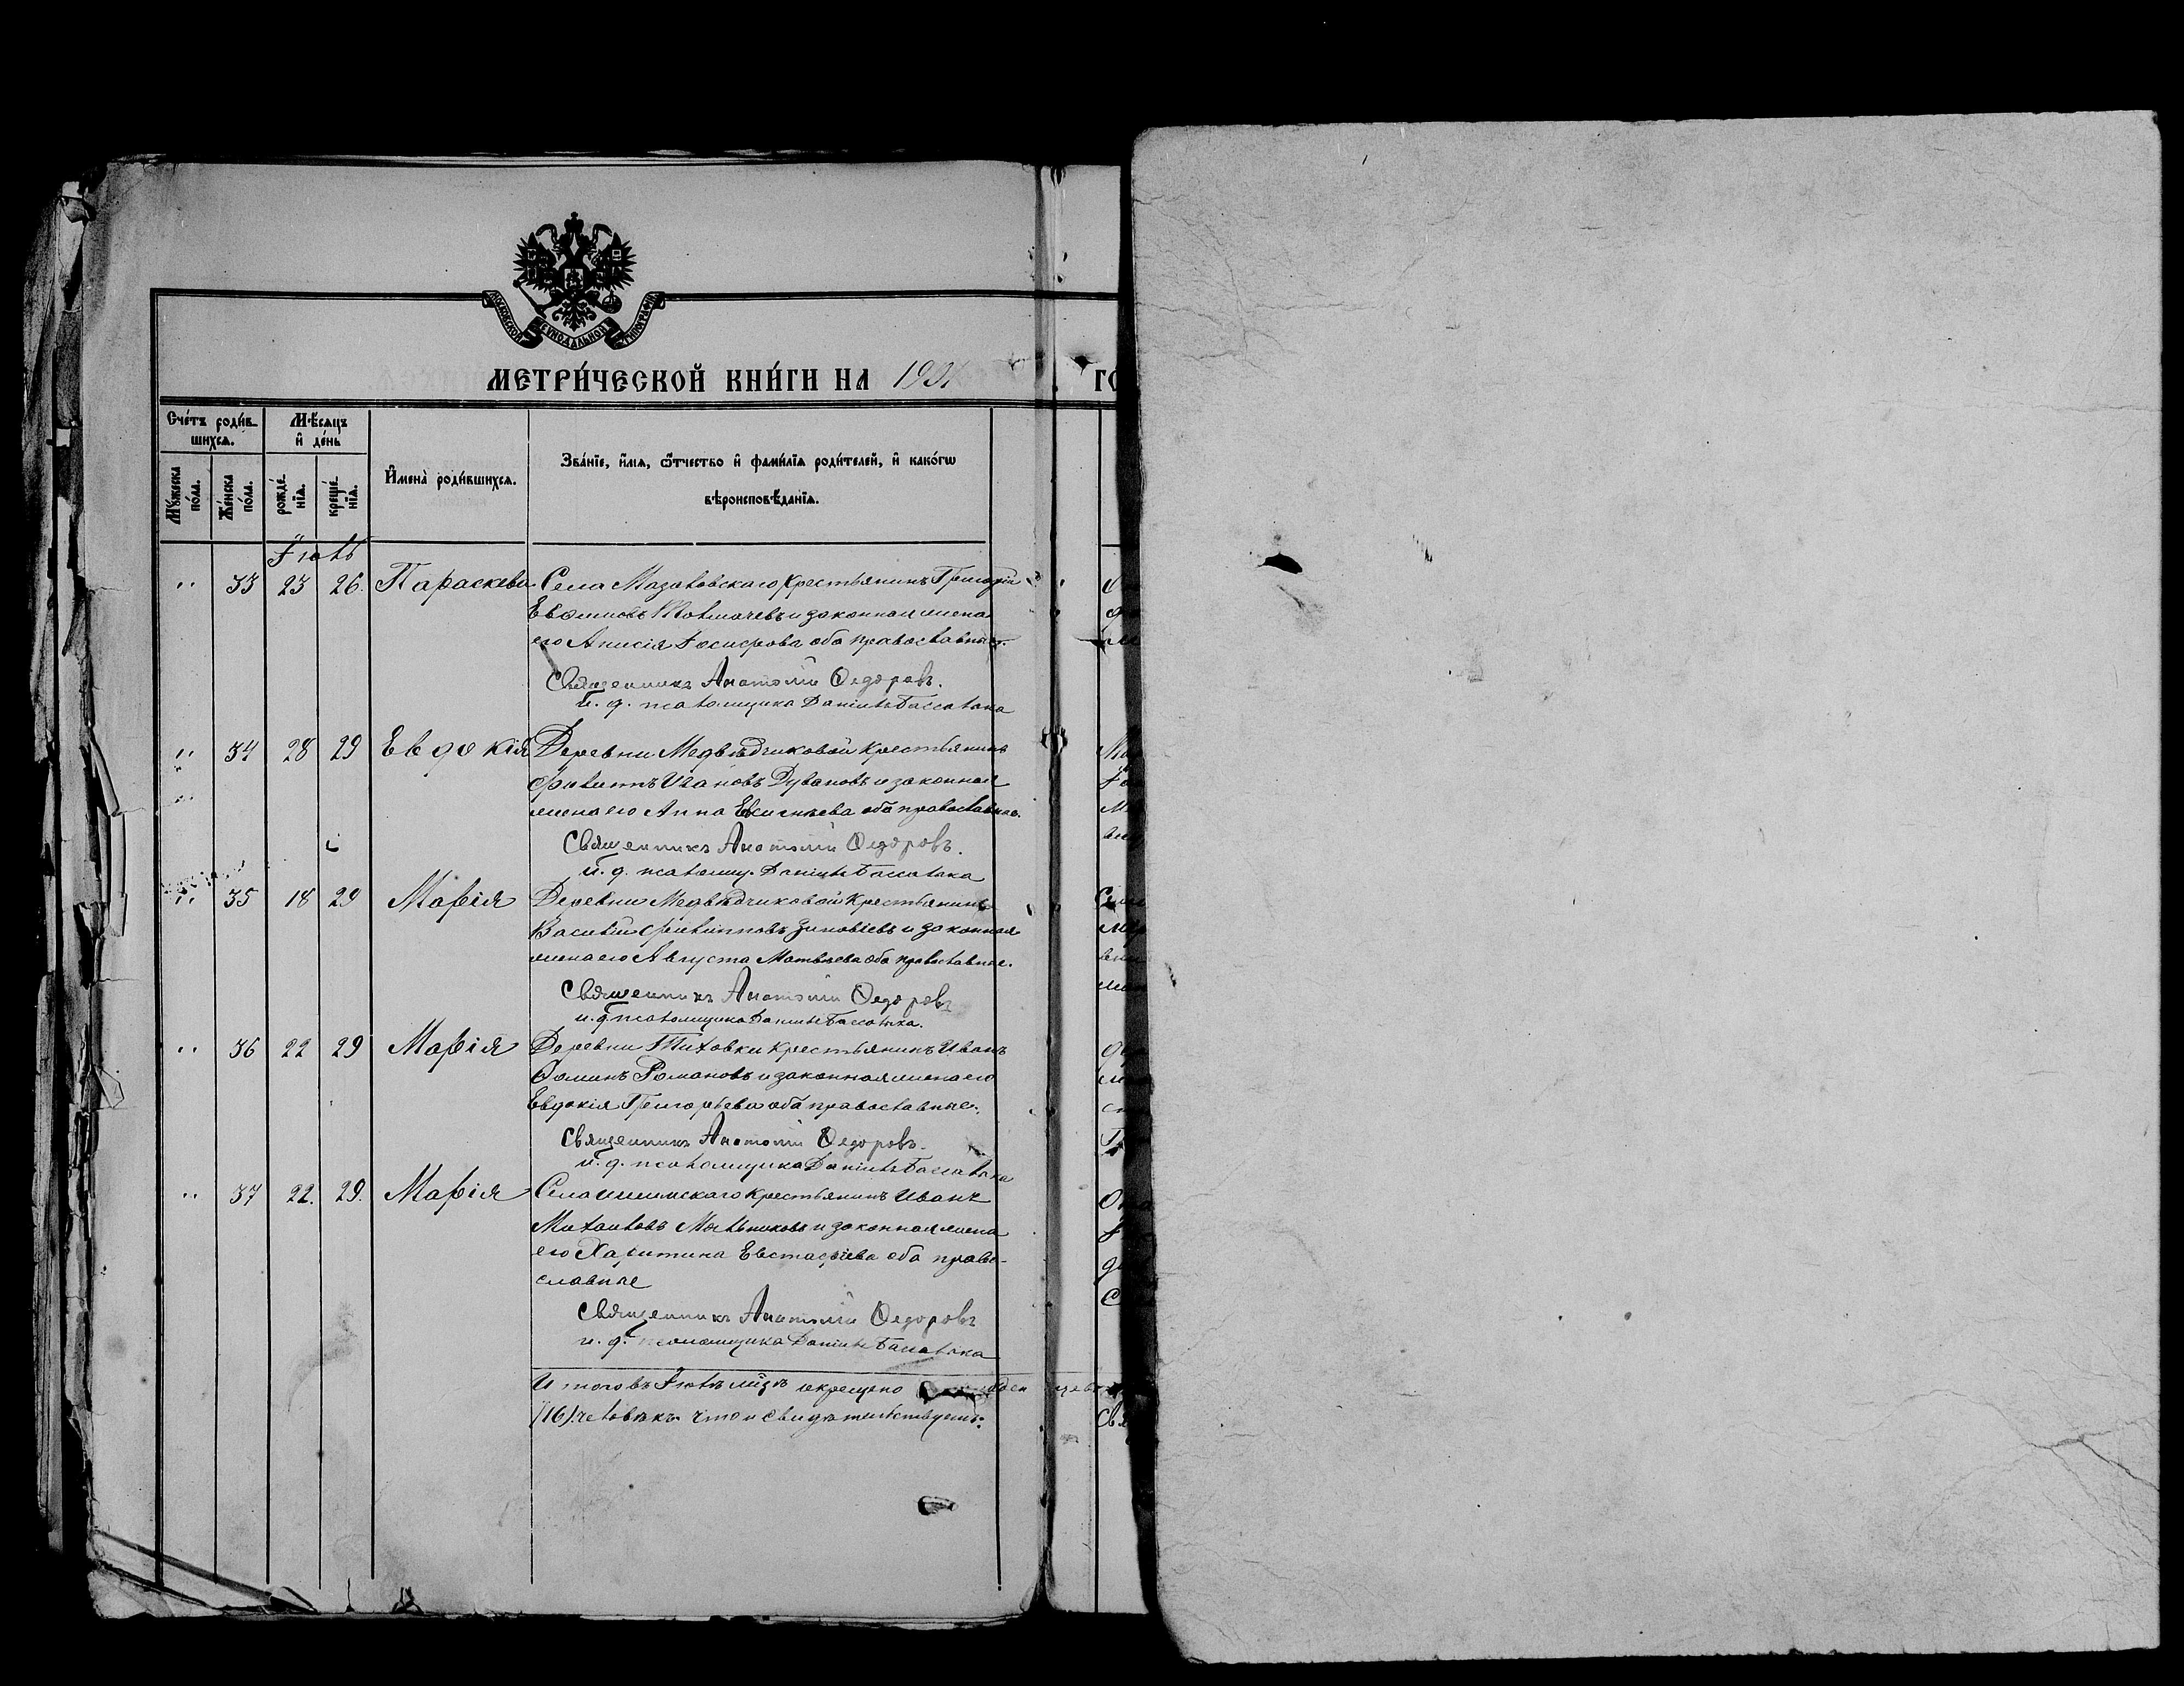 МОСКОВСКОЙ СѴНОДАЛЬНОЙ ТИПОГРАФІИ
МЕТРИ́ЧЕСКОЙ КНИ́ГИ НА 190
ГО
Сче́тъ роди́в-
шихсѧ.
Мѣ́сѧцъ
и҆ де́нь
Мꙋ́жеска
по́ла.
Же́нска
по́ла.
рожде́-
нїѧ.
креще́-
нїѧ.
И҆мена̀ роди́вшихсѧ.
Зва́нїе, и҆́мѧ, ѻ҆́тчество и҆ фами́лїѧ роди́телей, и҆ како́гѡ
вѣроисповѣ́данїѧ.
Іюль
" 33 23 26. Параскева Села Мазаловскаго крестьянинъ Григорій
Евѳимовъ Толмачевъ и законная жена
его Анисія Іосифова оба православные.
Священникъ Анатолій Ѳедоровъ.
и. д. псаломщика Даніилъ
" 34 28 29 Евдокія Деревни Медвѣдчиковой крестьянинъ
Филиппъ Ивановъ и законная
жена его Анна Евсигнѣева оба православные.
Священникъ Анатолій Ѳедоровъ.
и. д. псаломщ. Даніилъ
" 35 18 29 Марія Деревни Медвѣдчиковой крестьянинъ
Василій Филипповъ Зиновіевъ и законная
жена его Августа Матвѣева оба православные.
Священникъ Анатолій Ѳедоровъ
и. д. псаломщика Даніилъ
" 36 22 29 Марія Деревни Тиховки крестьянинъ Иванъ
Ѳоминъ Романовъ и законная жена его
Евдокія Григорьева оба православные.
Священникъ Анатолій Ѳедоровъ.
и. д. псаломщика Даніилъ
" 37 22. 29. Марія Села Ишимскаго крестьянинъ Иванъ
Михаиловъ Мыльниковъ и законная жена
его Харитина Евстафіева оба право-
славные
Священникъ Анатолій Ѳедоровъ
и. д. псаломщика Даніилъ
Итого въ Іюлѣ м-цѣ окрещено
(16) человѣкъ что и свидѣтельствуемъ: